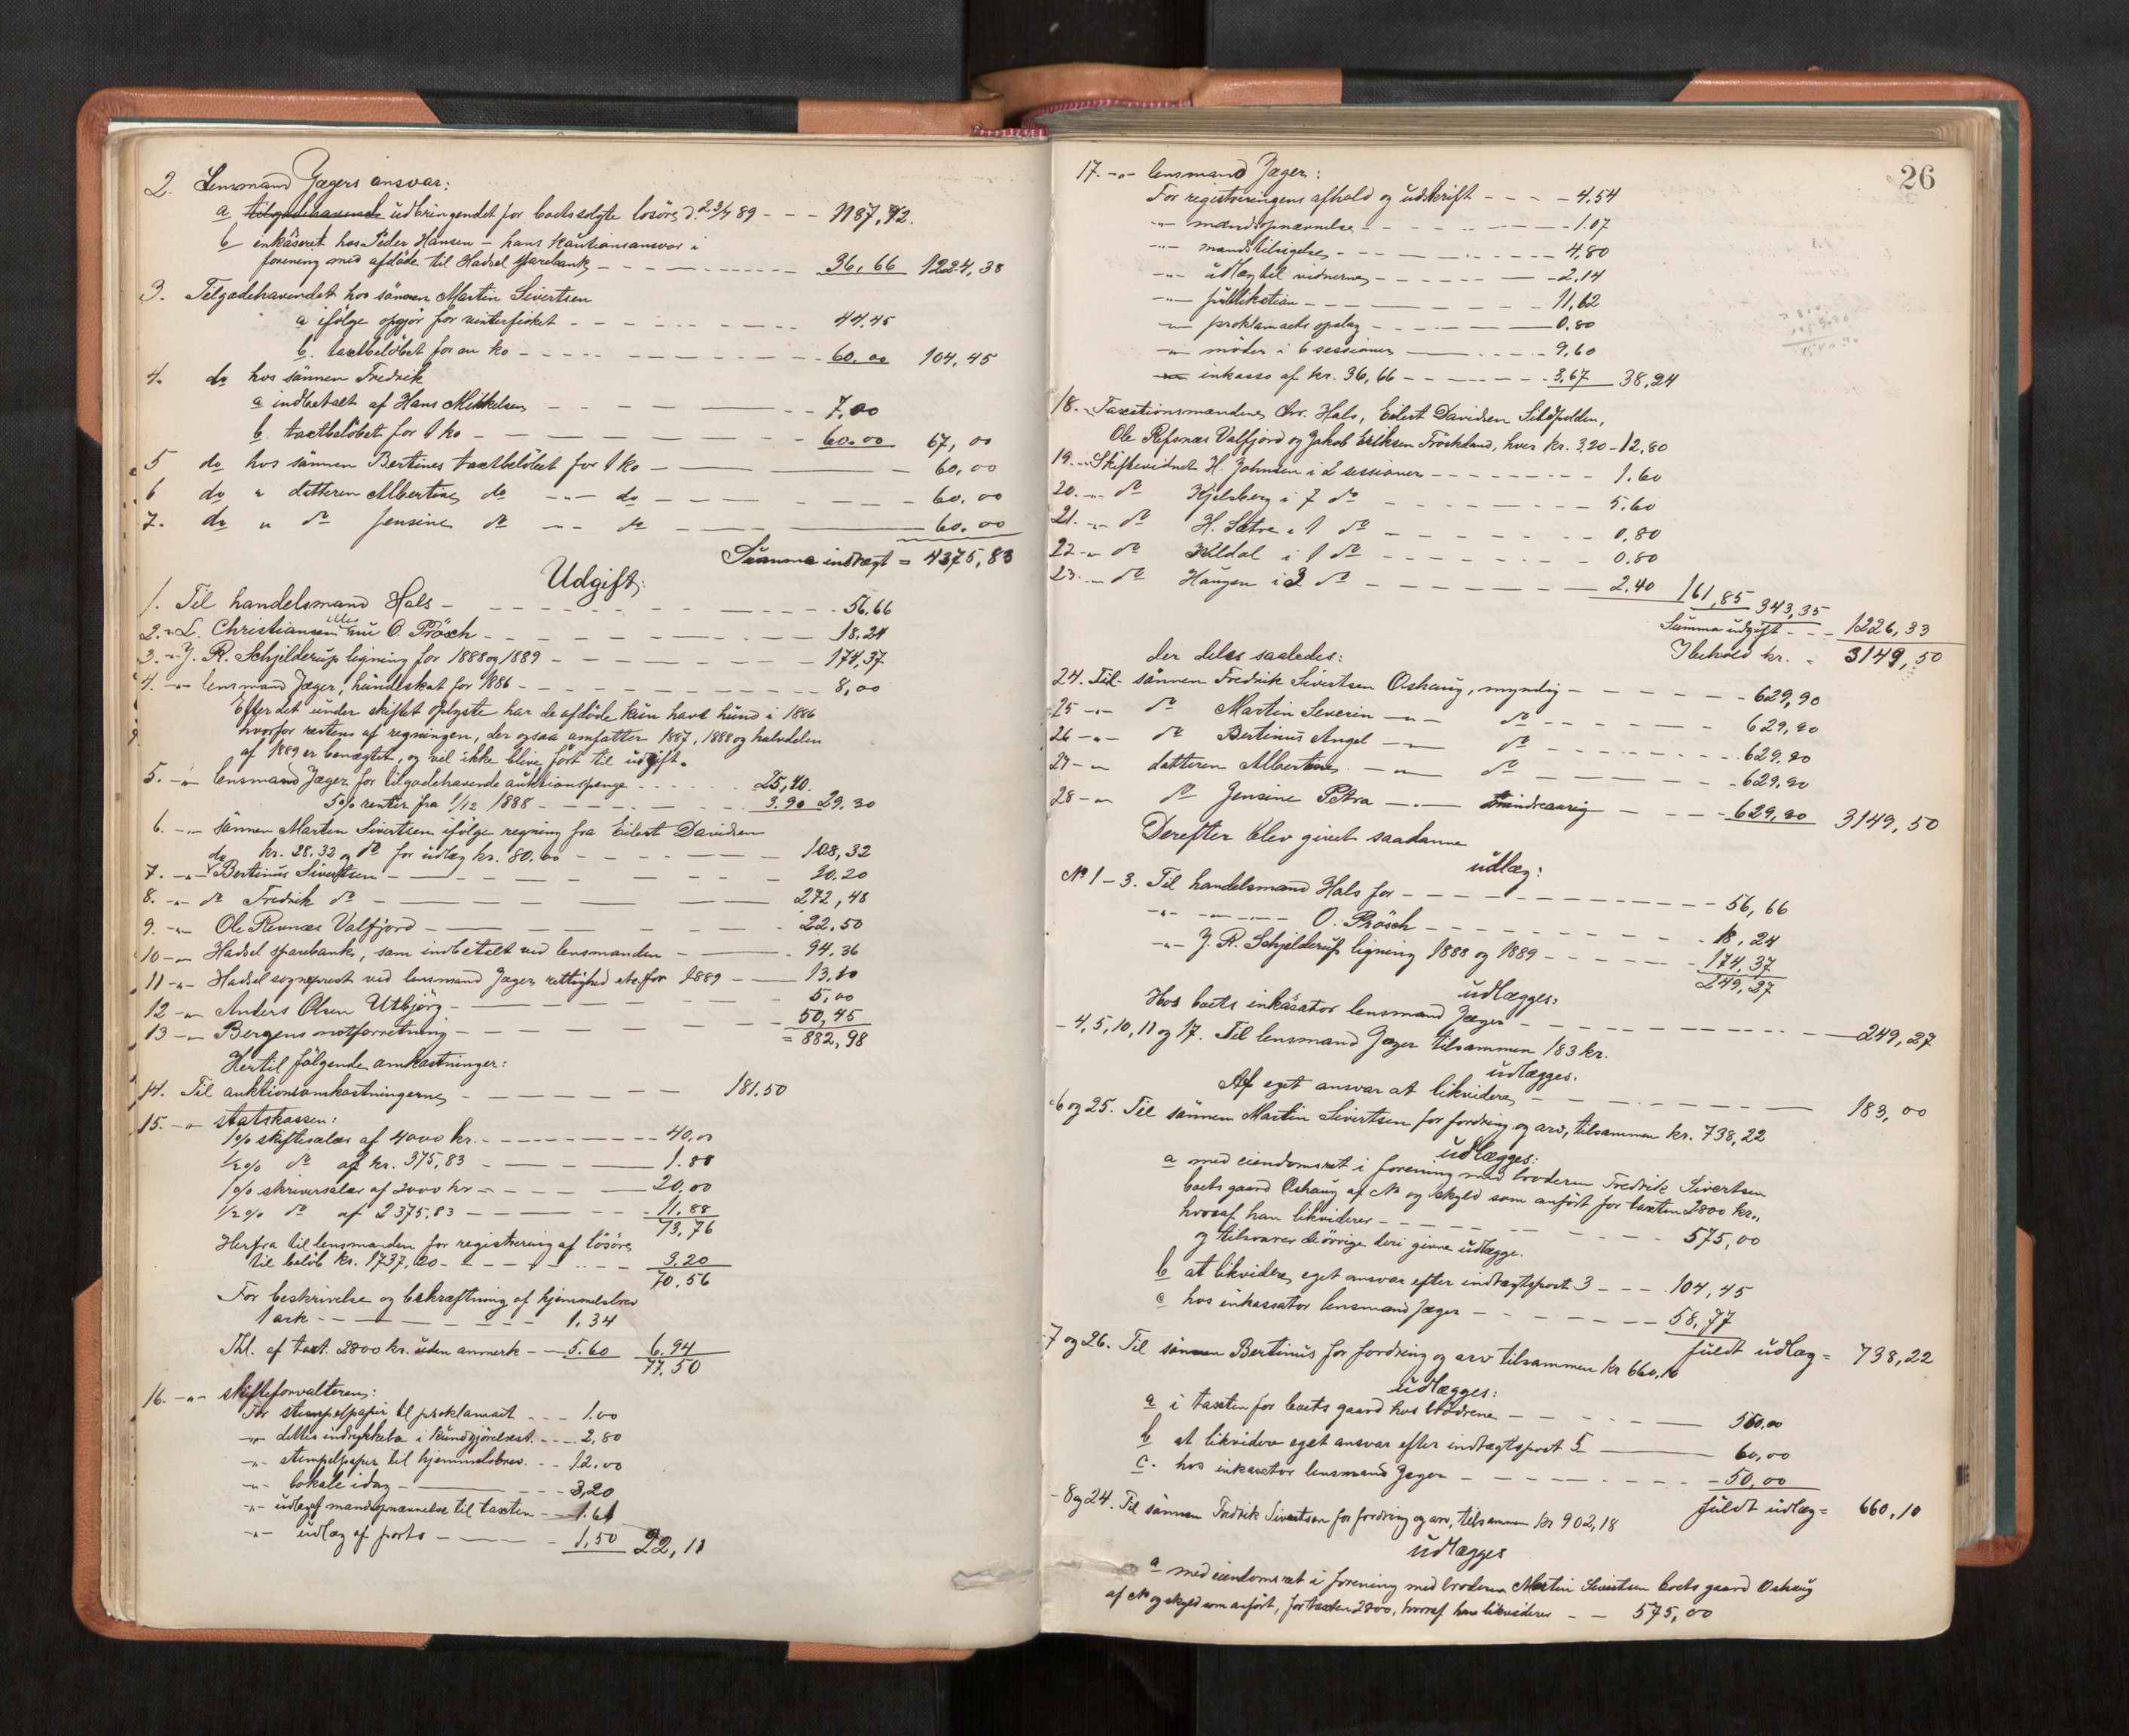 2. Lensmand Jægers ansvar:
a tilgodehavende udbringendet for boets solgte lösöre d. 23/7 89 - - - 1187,72.
b inkasseret hos Peder Hansen - hans kautionsansvar i
forening med afdöde til Hadsel sparebank - - - 36,66 1224,38
3. Tilgodehavendet hos sönnen Martin Sivertsen
a ifölge opgjör for vinterfisket - - - 44,45
b. taxtbelöbet for en ko - - - 60,00 104,45
4. do hos sönnen Fredrik
a indbetalt af Hans Mikkelsen - - - 7,00
b. taxtbelöbet for 1 ko - - - 60.00 67,00
5 do hos sönnen Bertines taxtbelöbet for 1 ko - - - 60,00
6 do " datteren Albertine do -"- do - - - 60.00
7. do " do Jensine do -"- do - - - 60.00
Summa indtægt = 4375,83
Udgift:
1. Til handelsmand Hals - - - 56.66
2. -"- L. Christiansen eller nu O. Prösch - - - 18.24
3. -"- J. R. Schjelderup ligning for 1888 og 1889 - - - 174,37
4. -"- lensmand Jæger, hundeskat for 1886 - - - 8,00
Efter det under skiftet oplyste har de afdöde kun havt hund i 1886
hvorfor restens af regningen, der ogsaa omfatter 1887, 1888 og halvdelen
af 1889 er benægtet, og vil ikke blive fört til udgift.
5. -"- lensmand Jæger for tilgodehavende auktionspenge - - - 25,40.
5% renter fra 1/12 1888 - - - 3.90 29.30
6. -"- sönnen Martin Sivertsen ifölge regning fra Eilert Davidsen
kr. 28.32 og do for udlæg kr. 80.00 - - - 108,32
7. -"- do Bertinus Sivertsen - - - 20.20
8. -"- do Fredrik do - - - 272,48
9. -"- Ole Revnæs Valfjord - - - 22.50
10 -"- Hadsel sparebank, som indbetalt ved lensmanden - - - 94.36
11 -"- Hadsel sogneprest ved lensmand Jæger, rettighed etc. for 1889 - - - 13,10
12 -"- Anders Olsen Utbjörg - - - 5,00
13 -"- Bergens notforretning - - - 50,45
= 882,98
Hertil fölgende omkostninger:
14. Til auktionsomkostningerne - - - 181.50
15. -"- statskassen:
1% skiftesalær af 4000 kr. - - - 40,00
1/2% do af kr. 375,83 - - - 1.88
1% skriversalær af 2000 kr - - - 20.00
1/2% do af 2375,83 - - - 11,88
73,76
Herfra til lensmanden for registrering af lösöre
til belöb kr. 1737,00 - - - 3.20
70.56
For beskrivelse og bekræftning af hjemmelsbrev
1 ark - - - 1.34
Thl. af taxt. 2800 kr. uden anmerk - - 5.60 6.94
77.50
16. -"- skifteforvalteren:
For stempelpapir til proklamaet - - - 1.00
-"- dettes indrykkelse i kundgjörelsest. - - - 2,80
-"- stempelpapir til hjemmelsbrev - - - 12.00
-"- lokale idag - - - 3,20
-"- udlæg af mandsopnævnelse til taxten - - 1.61
-"- udlæg af porto - - - 1,50 22,11
26
17. -"- lensmand Jæger:
For registreringens afhold og udskrift - - - 4.54
-"- mandsopnævnelse - - - 1.07
-"- mands tilsigelse - - - 4,80
-"- udlæg til vidnerne - - - 2.14
-"- publikation - - - 11,62
-"- proklamaets opslag - - - 0.80
-"- möder i 6 sessioner - - - 9,60
-"- inkasso af kr. 36,66 - - - 3,67 38,24
18. -"- Taxationsmændene Chr. Hals, Eilert Davidsen Sildpolden,
Ole Refsnæs Valfjord og Jakob Eriksen Fröskland, hver kr. 3,20 - 12,80
19. -"- Skiftevidnet H. Johnsen i 2 sessioner - - - 1.60
20. -"- do Kjelsberg i 7 do - - - 5.60
21. -"- do H. Sætre i 1 do - - - 0,80
22 -"- do Kildal i 1 do - - - 0.80
23. -"- do Haugen i 3 do - - - 2,40 161,85 343,35
Summa udgift - - - 1226,33
Ibehold kr. = 3149,50
der deles saaledes:
24. Til sönnen Fredrik Sivertsen Oshaug, myndig - - - 629,90
25 -"- do Martin Severin -"- do - - - 629,90
26 -"- do Bertinus Angel -"- do - - - 629,90
27 -"- datteren Albertine -"- do - - - 629,90
28 -"- do Jensine Petra -"- mindreaarig - - - 629,90 3149,50
Derefter blev givet saadanne
udlæg:
No 1 - 3. Til handelsmand Hals for - - - 56,66
-"- -"- O. Prösch - - - 18,24
-"- J. R. Schjelderup ligning 1888 og 1889 - - - 174,37
249,27
udlægges:
Hos boets inkassator lensmand Jæger - - - 249,27
- 4, 5, 10, 11 og 17. Til lensmand Jæger tilsammen 183 kr.
udlægges.
Af eget ansvar at likvidere - - - 183,00
- 6 og 25. Til sönnen Martin Sivertsen for fordring og arv, tilsammen kr. 738,22
udlægges:
a med eiendomsret i forening med broderen Fredrik Sivertsen
boets gaard Oshaug af No og skyld som anfört for taxten 2800 kr.,
hvoraf han likviderer - - - 575,00
og tilsvarer de övrige deri givne udlægge.
b at likvidere eget ansvar efter indtægtspost 3 - - - 104,45
c hos inkassator lensmand Jæger - - - 58,77
fuldt udlæg = 738,22
- 7 og 26. Til sönnen Bertinus for fordring og arv tilsammen kr 660,10
udlægges:
a i taxten for boets gaard hos brödrene - - - 550.00
b at likvidere eget ansvar efter indtægtspost 5 - - - 60,00
c. hos inkassator lensmand Jæger - - - 50,00
fuldt udlæg = 660,10
- 8 og 24. Til sönnen Fredrik Sivertsen for fordring og arv, tilsammen kr 902,18
udlægges
a med eiendomsret i forening med broderen Martin Sivertsen boets gaard Oshaug
af No og skyld som anfört, for taxten 2800, hvoraf han likviderer - - 575,00